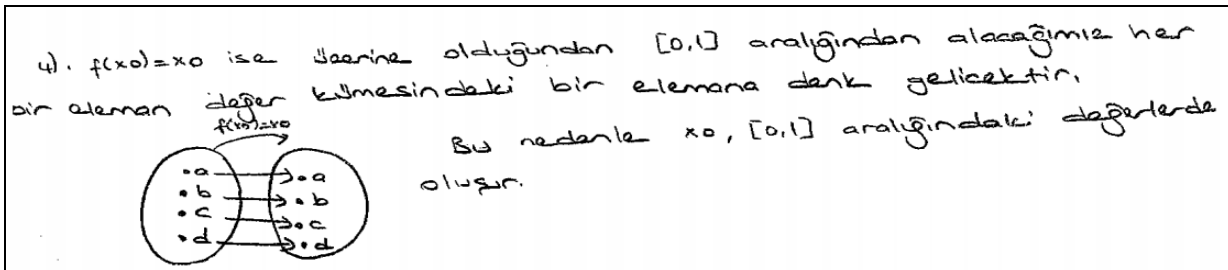 4). f(x0)=x0 ise üzerine olduğundan [0,1] aralığından alacağımız her
bir eleman değer kümesindeki bir elemana denk gelicektir.
f(x0)=x0
Bu nedenle x0, [0,1] aralığındaki değerlerde
oluşur.
a a
b b
c c
d d